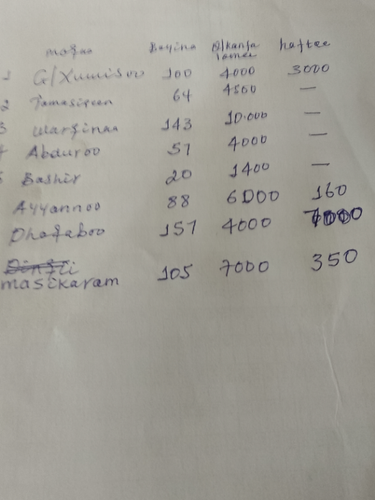 maqaa Bayina Qlkanfa tamee haftee
1 G/Xumisoo 100 4000 3000
2 Tamasgeen 64 4500 —
3 Warqinaa 143 10.000 —
4 Abduroo 51 4000 —
5 Bashir 20 1400 —
Ayyannoo 88 6000 160
Dhaqaboo 157 4000
masikaram 105 7000 350